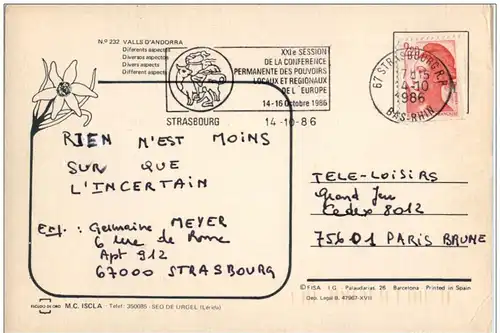 N.º 237 VALLS D'ANDORRA
Diferents aspectes
Diversos aspectos
Divers aspects
Different aspects
XXIe SESSION
DE LA CONFERENCE
PERMANENTE DES POUVOIRS
LOCAUX ET REGIONAUX
DE L'EUROPE
14-16 Octobre 1986
STRASBOURG
14-10-86
67 STRASBOURG R.P.
17H15
14-10
1986
BAS-RHIN
2,20
RIEN N'EST MOINS
SUR QUE
L'INCERTAIN
Exp. : Germaine MEYER
6 rue de Rome
Apt 912
67000 STRASBOURG
TELE-LOISIRS
Grand Jeu
Cedex 8012
75601 PARIS BRUNE
ESCUDO DE ORO
M.C. ISCLA - Telef. 350085 - SEO DE URGEL (Lérida)
© FISA I.G. Palaudarias, 26 Barcelona - Printed in Spain
Dep. Legal B. 47967-XVII